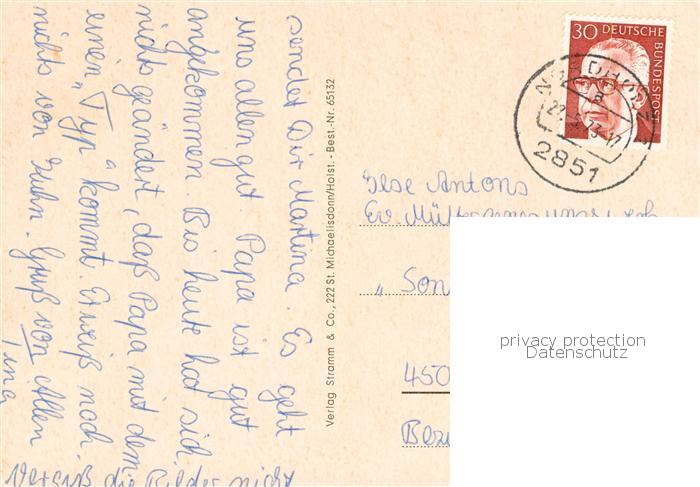 sendet Dir Martina. Es geht
uns allen gut. Papa ist gut
angekommen. Bis heute hat sich
nichts geändert, daß Papa mit dem
einen "Typ" kommt. Er weiß noch
nichts von Ihm. Gruß von Allen
Tina
Vergiß die Bilder nicht
Verlag Stramm & Co., 222 St. Michaelisdonn/Holst. - Best.-Nr. 65132
30 DEUTSCHE
BUNDESPOST
2851
Ilse Antons
Ev. Müttergenesungs
"Son
450
Bez
privacy protection
Datenschutz